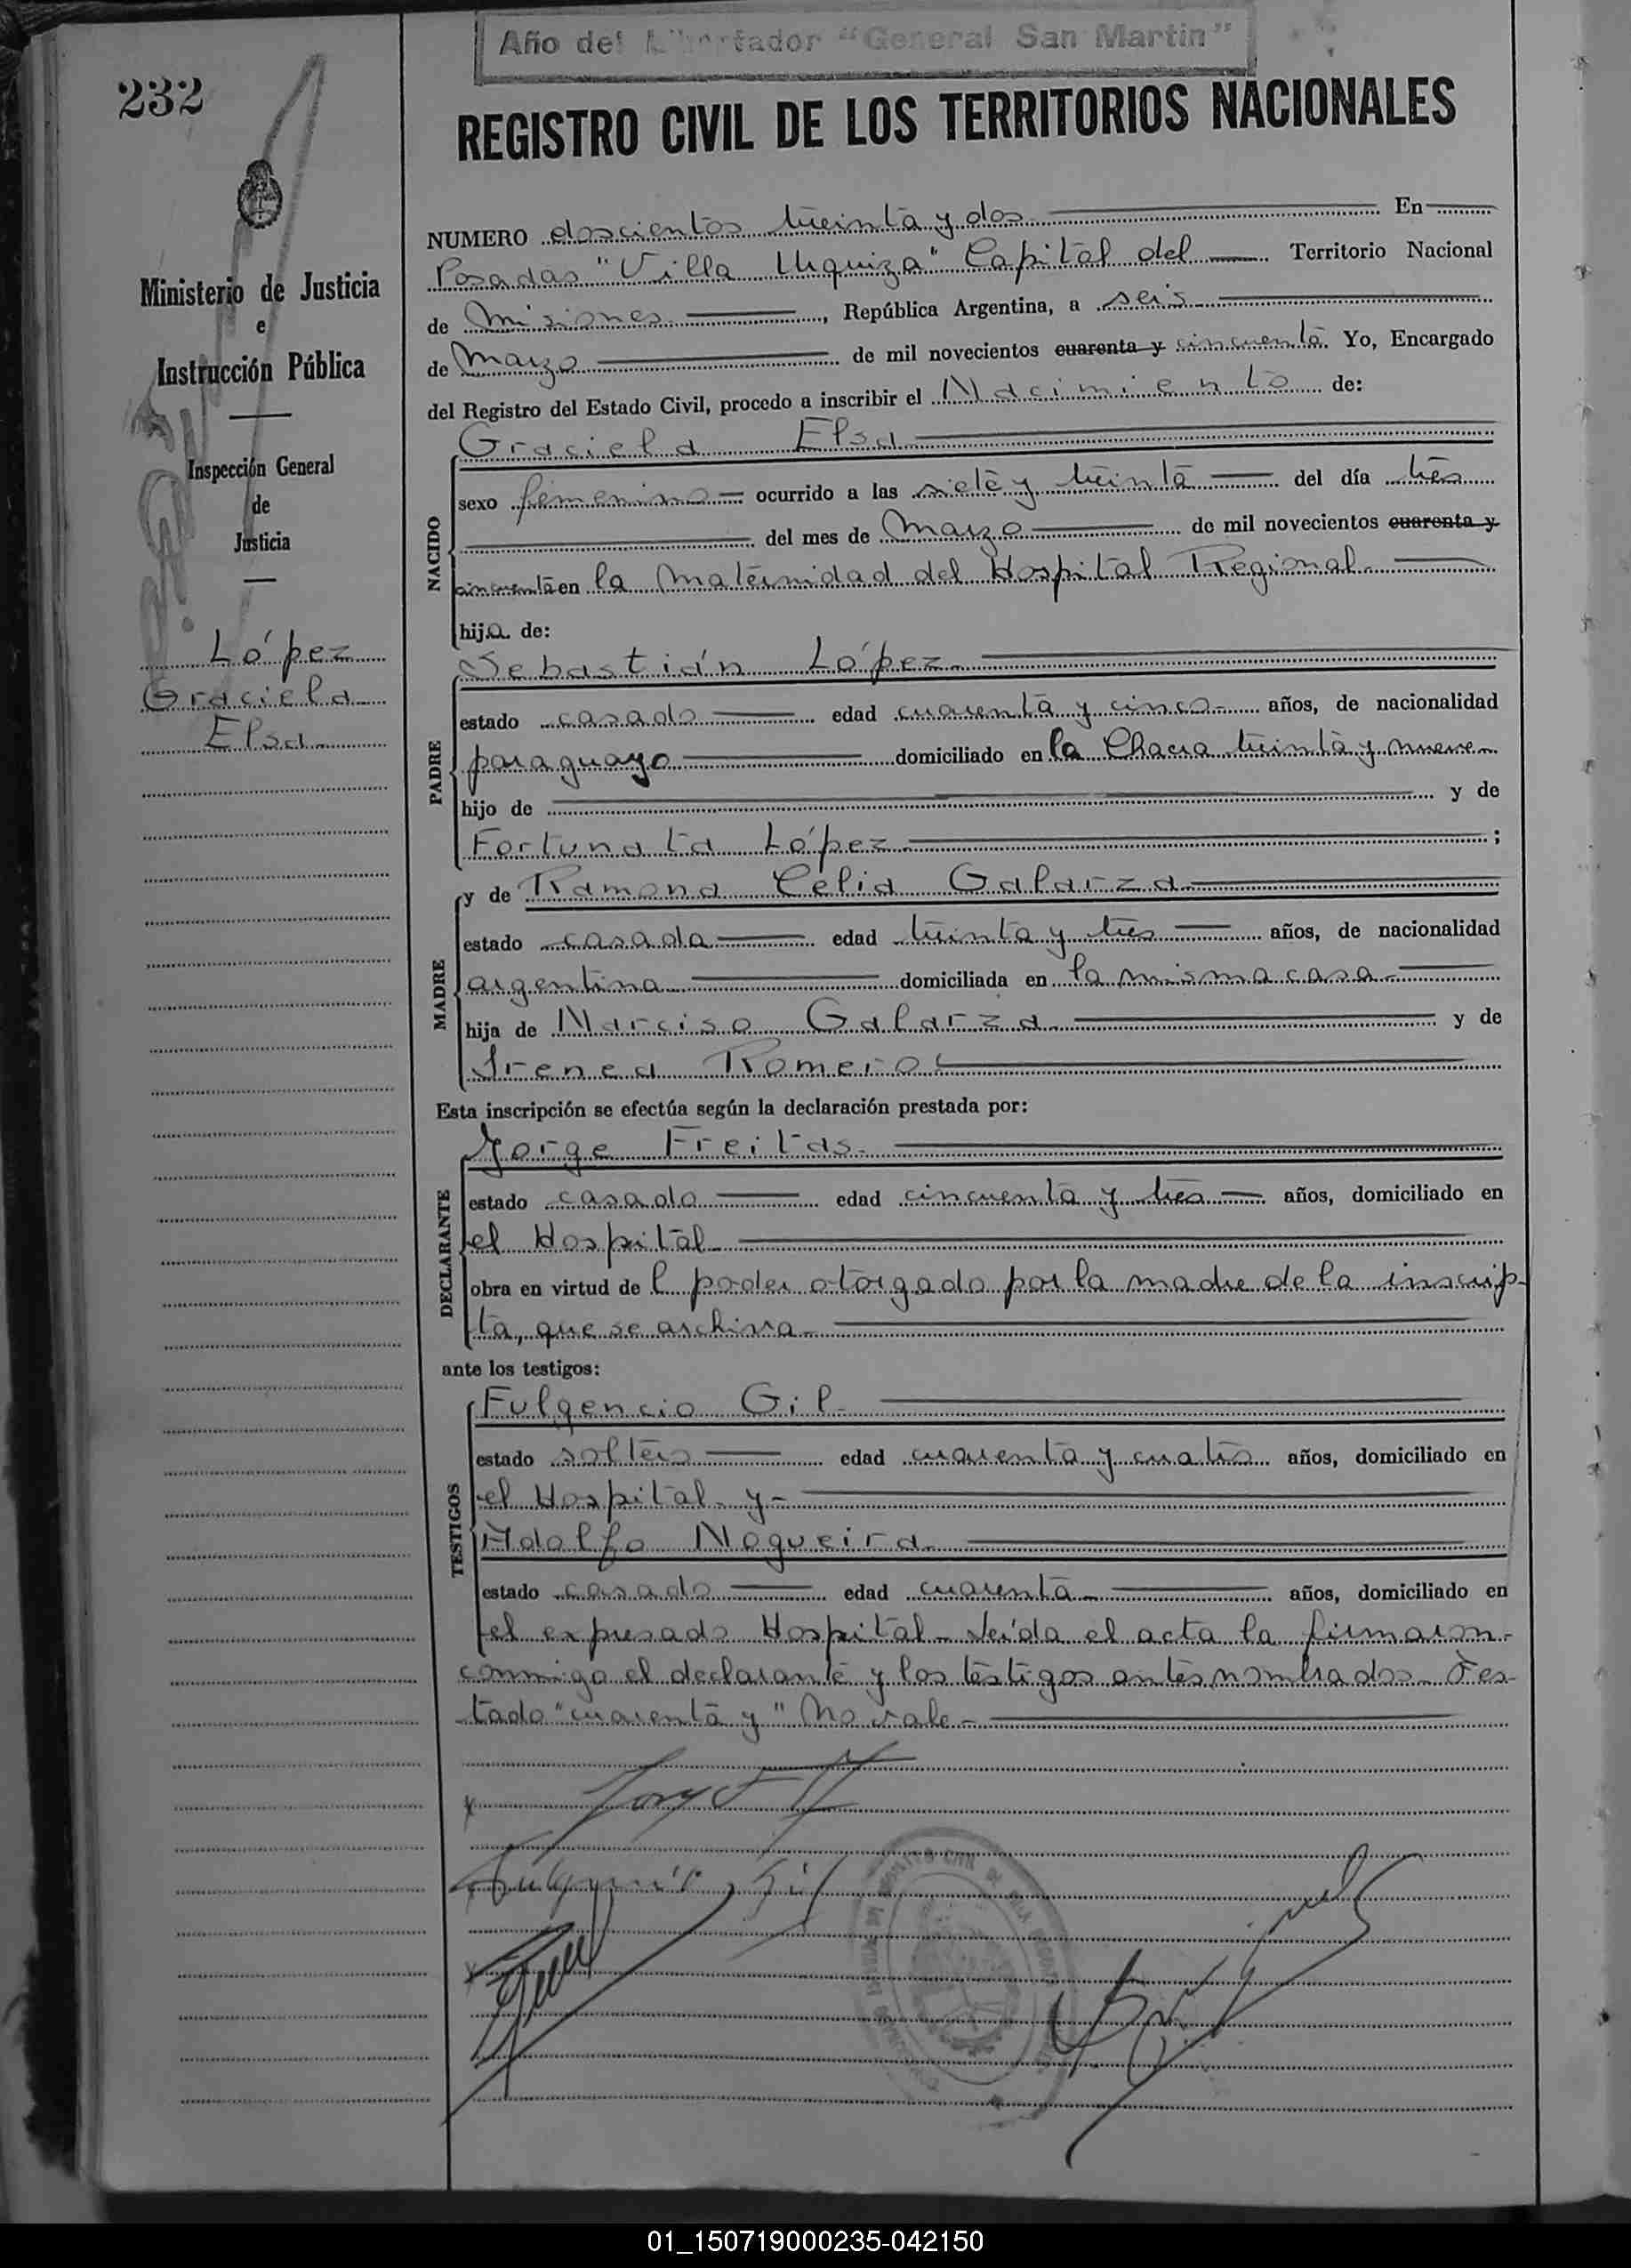 Año del Libertador "General San Martin"
232
REGISTRO CIVIL DE LOS TERRITORIOS NACIONALES
Ministerio de Justicia
e
Instrucción Pública
Inspección General
de
Justicia
López
Graciela
Elsa
NUMERO doscientos treinta y dos En
Posadas "Villa Urquiza" Capital del Territorio Nacional
de Misiones, República Argentina, a seis
de Marzo de mil novecientos cuarenta y cincuenta. Yo, Encargado
del Registro del Estado Civil, procedo a inscribir el Nacimiento de:
NACIDO
Graciela Elsa
sexo femenino ocurrido a las siete y treinta del día tres
del mes de Marzo de mil novecientos cuarenta y
cincuenta en la Maternidad del Hospital Regional
hija de:
PADRE
Sebastián López
estado casado edad cuarenta y cinco años, de nacionalidad
paraguayo domiciliado en la Chacra treinta y nueve
hijo de y de
Fortunata López ;
MADRE
y de Ramona Celia Galarza
estado casada edad treinta y tres años, de nacionalidad
argentina domiciliada en la misma casa
hija de Narciso Galarza y de
Irenea Romero
Esta inscripción se efectúa según la declaración prestada por:
DECLARANTE
Jorge Freitas
estado casado edad cincuenta y tres años, domiciliado en
el Hospital
obra en virtud de l poder otorgado por la madre de la inscrip-
ta, que se archiva
ante los testigos:
TESTIGOS
Fulgencio Gil
estado soltero edad cuarenta y cuatro años, domiciliado en
el Hospital y-
Adolfo Nogueira
estado casado edad cuarenta años, domiciliado en
el expresado Hospital - Leída el acta la firmaron
conmigo el declarante y los testigos antes nombrados - Tes-
tado "cuarenta y" No vale-
Fulgencio Gil
01_150719000235-042150